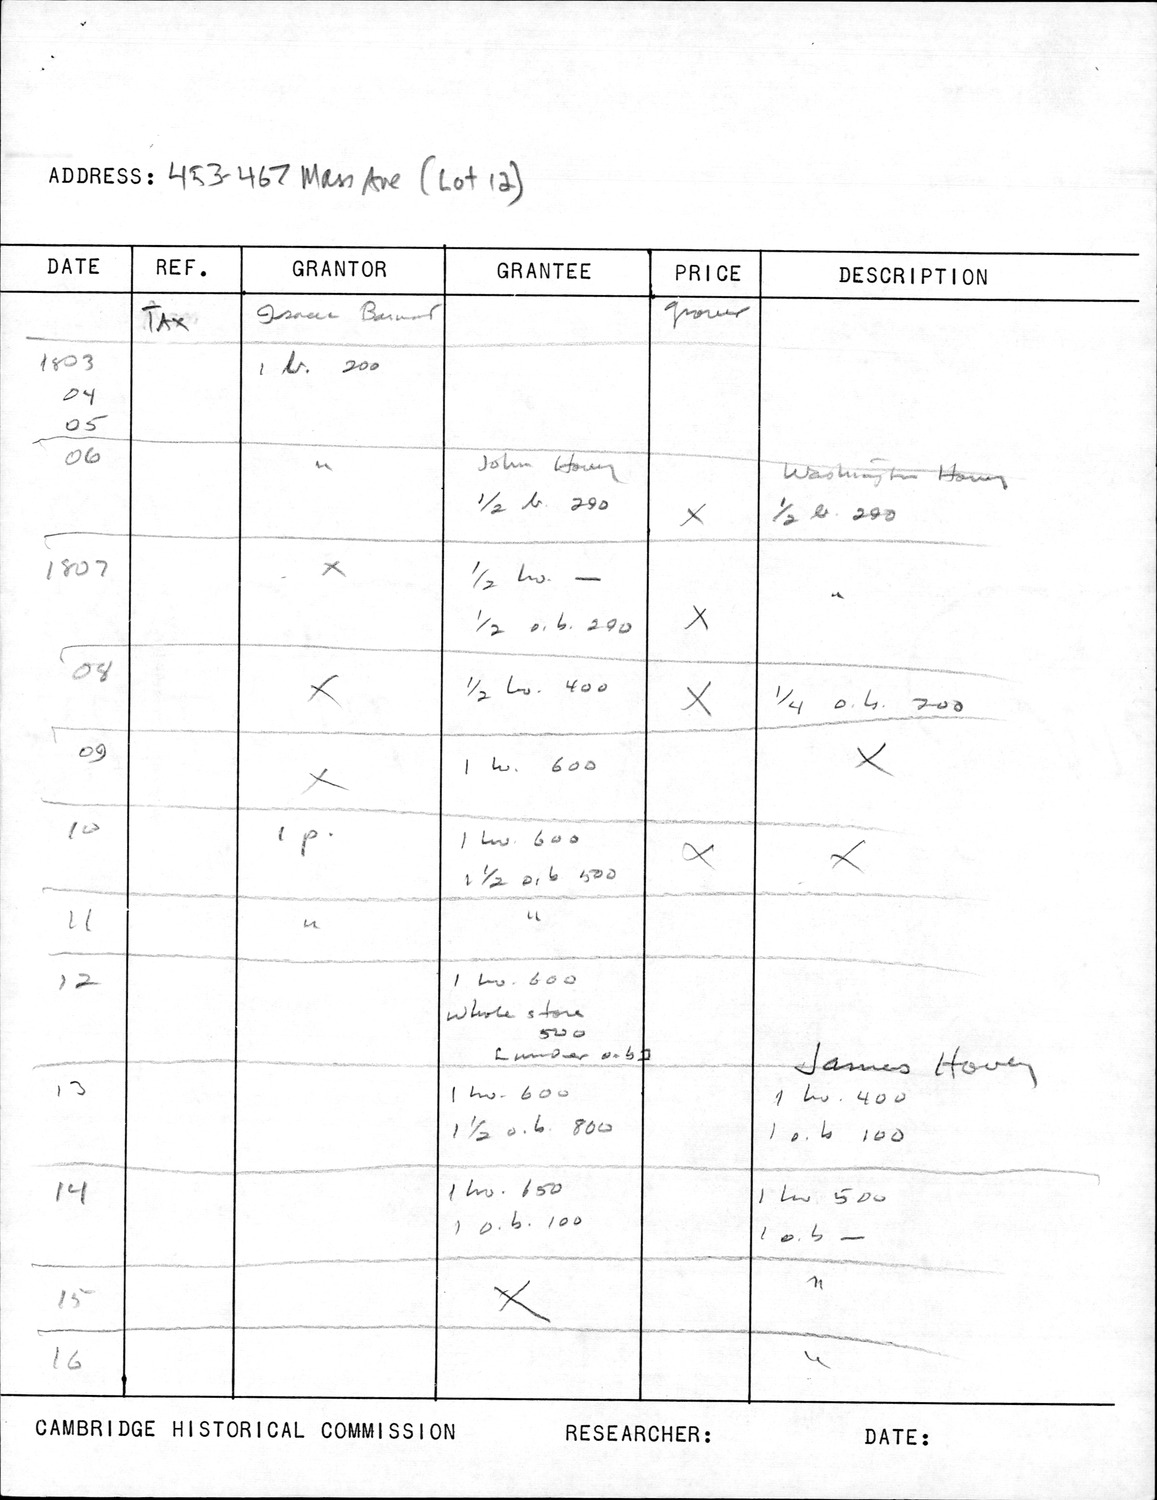 ADDRESS: 453-467 Mass Ave (Lot 12)
DATE REF. GRANTOR GRANTEE PRICE DESCRIPTION
TAX Isaac
1803 1 b. 200
04
05
06 " John Hovey Washington Hovey
1/2 b. 290 X 1/2 b. 290
1807 X 1/2 ho. — "
1/2 o.b. 290 X
08 X 1/2 ho. 400 X 1/4 o.b. 200
09 X 1 ho. 600 X
10 1 p. 1 ho. 600 X X
1 1/2 o.b 500
11 " "
12 1 ho. 600
Whole store
500
[under o.b]
James Hovey
13 1 ho. 600 1 ho. 400
1 1/2 o.b. 800 1 o.b 100
14 1 ho. 650 1 ho 500
1 o.b. 100 1 o.b —
15 X "
16 "
CAMBRIDGE HISTORICAL COMMISSION RESEARCHER: DATE: